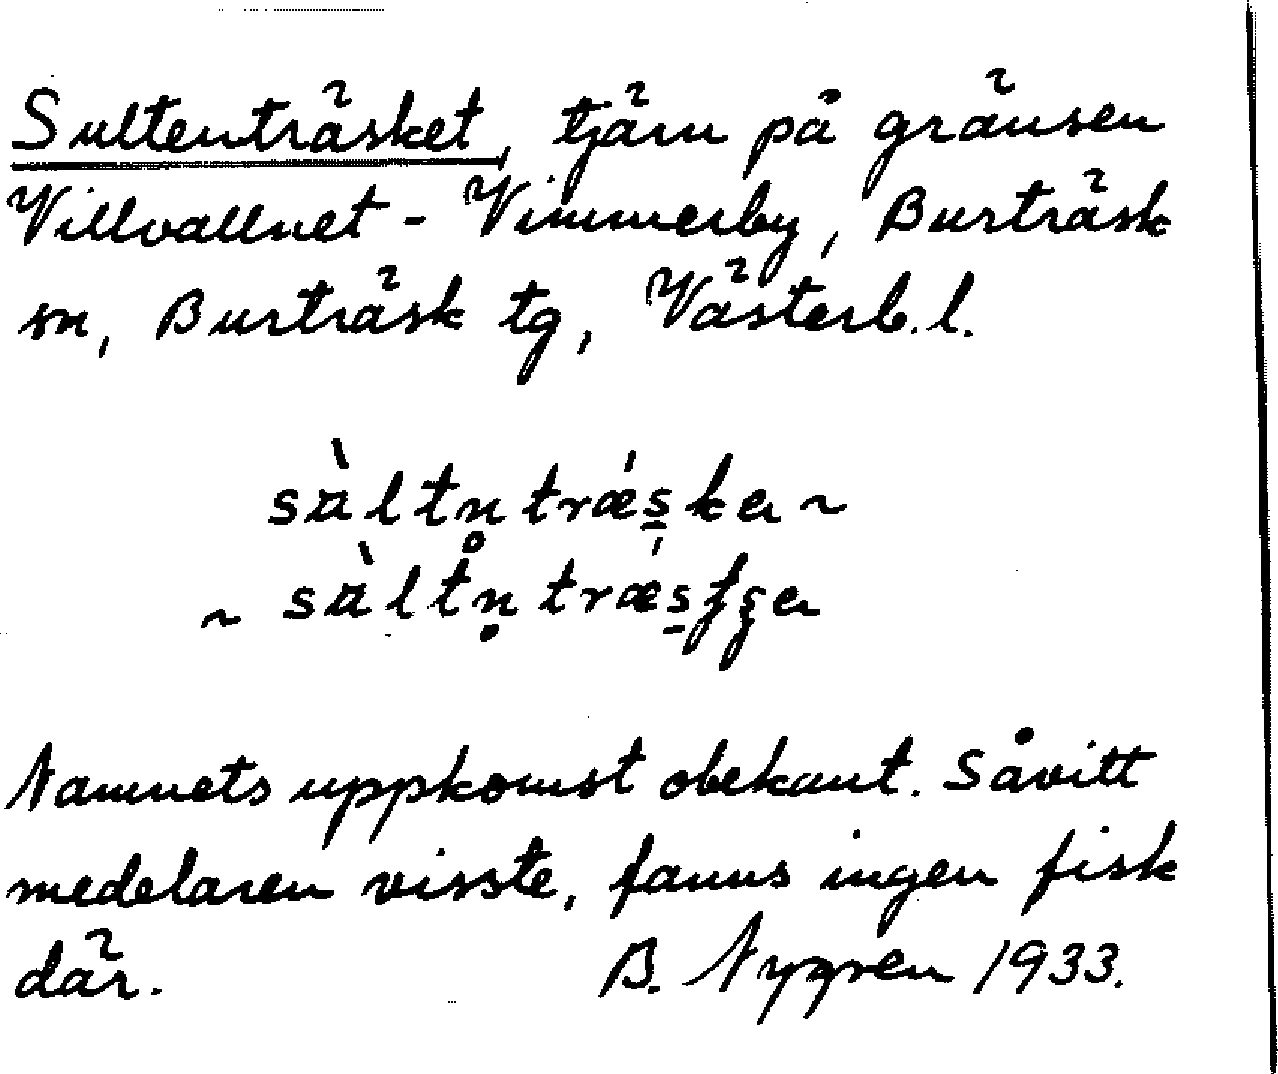 Sultenträsket, tjärn på gränsen
Villvallnet - Vimmerby, Burträsk
sn, Burträsk tg, Västerb.l.
Namnets uppkomst obekant. Såvitt
medelaren visste, fanns ingen fisk
där. B. Nygren 1933.